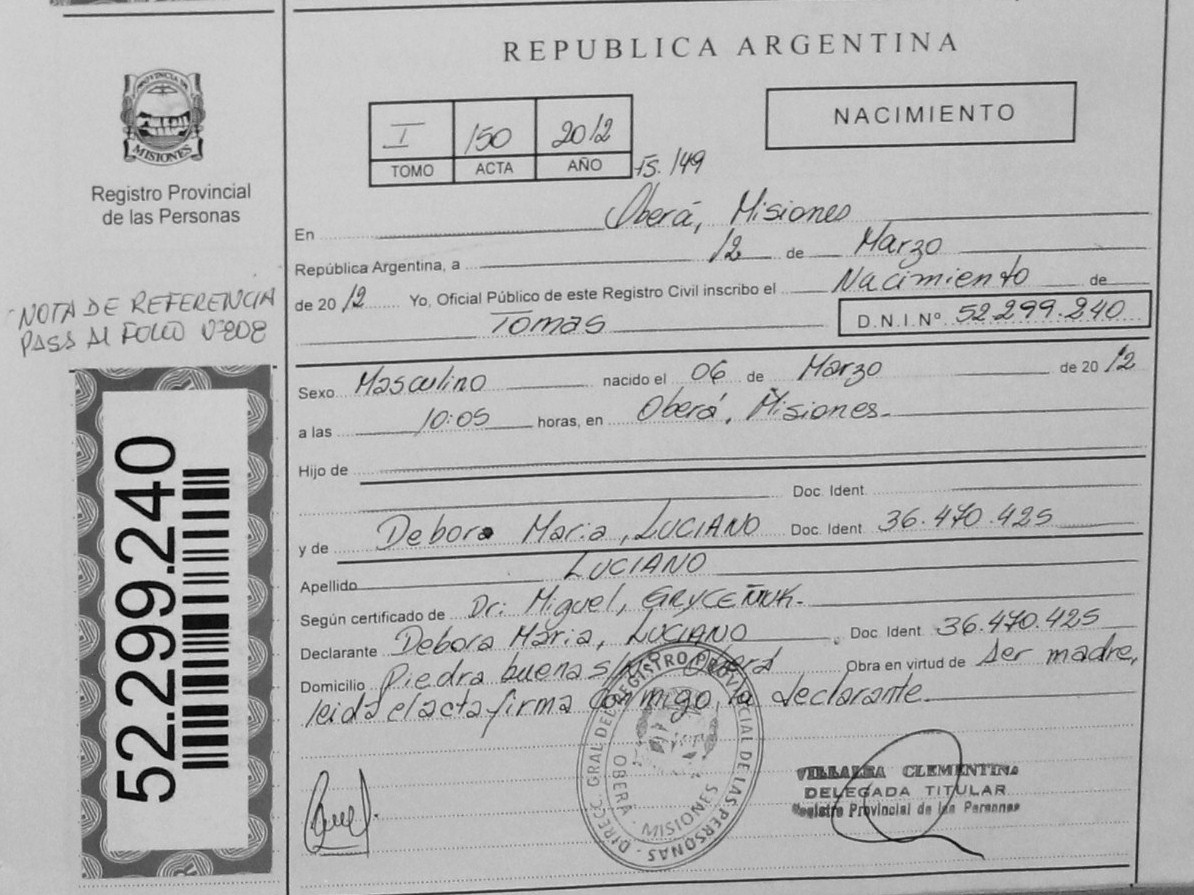 REPUBLICA ARGENTINA
PROVINCIA DE
MISIONES
Registro Provincial
de las Personas
NOTA DE REFERENCIA
PASA Al FOLIO Nº 208
52.299.240
I 150 2012
TOMO ACTA AÑO
Fs. 149
NACIMIENTO
En Oberá, Misiones
República Argentina, a 12 de Marzo
de 2012 Yo, Oficial Público de este Registro Civil inscribo el Nacimiento de
Tomas D.N.I.Nº 52.299.240
Sexo Masculino nacido el 06 de Marzo de 2012
a las 10:05 horas, en Oberá, Misiones.
Hijo de
Doc. Ident.
y de Debora Maria, LUCIANO Doc. Ident. 36.470.425
Apellido LUCIANO
Según certificado de Dr: Miguel, GRYCEÑUK.
Declarante Debora Maria, LUCIANO Doc. Ident. 36.470.425
Domicilio Piedra buena s/nº Oberá Obra en virtud de Ser madre,
leida el acta firma conmigo, la declarante.
DIRECC. GRAL DEL REGISTRO PROVINCIAL DE LAS PERSONAS
OBERÁ - MISIONES
VILLALBA CLEMENTINA
DELEGADA TITULAR
Registro Provincial de las Personas